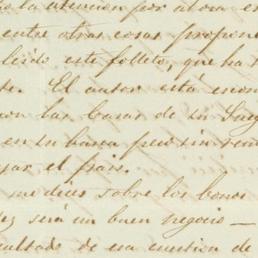 la atencion por ahora e
entre otras cosas propone
leido este folleto, que ha
te. El autor está
con las bases de su
en su busca pero sin
el pais.
me dice sobre los bonos
será un buen negocio —
resultado de esa cuestion de